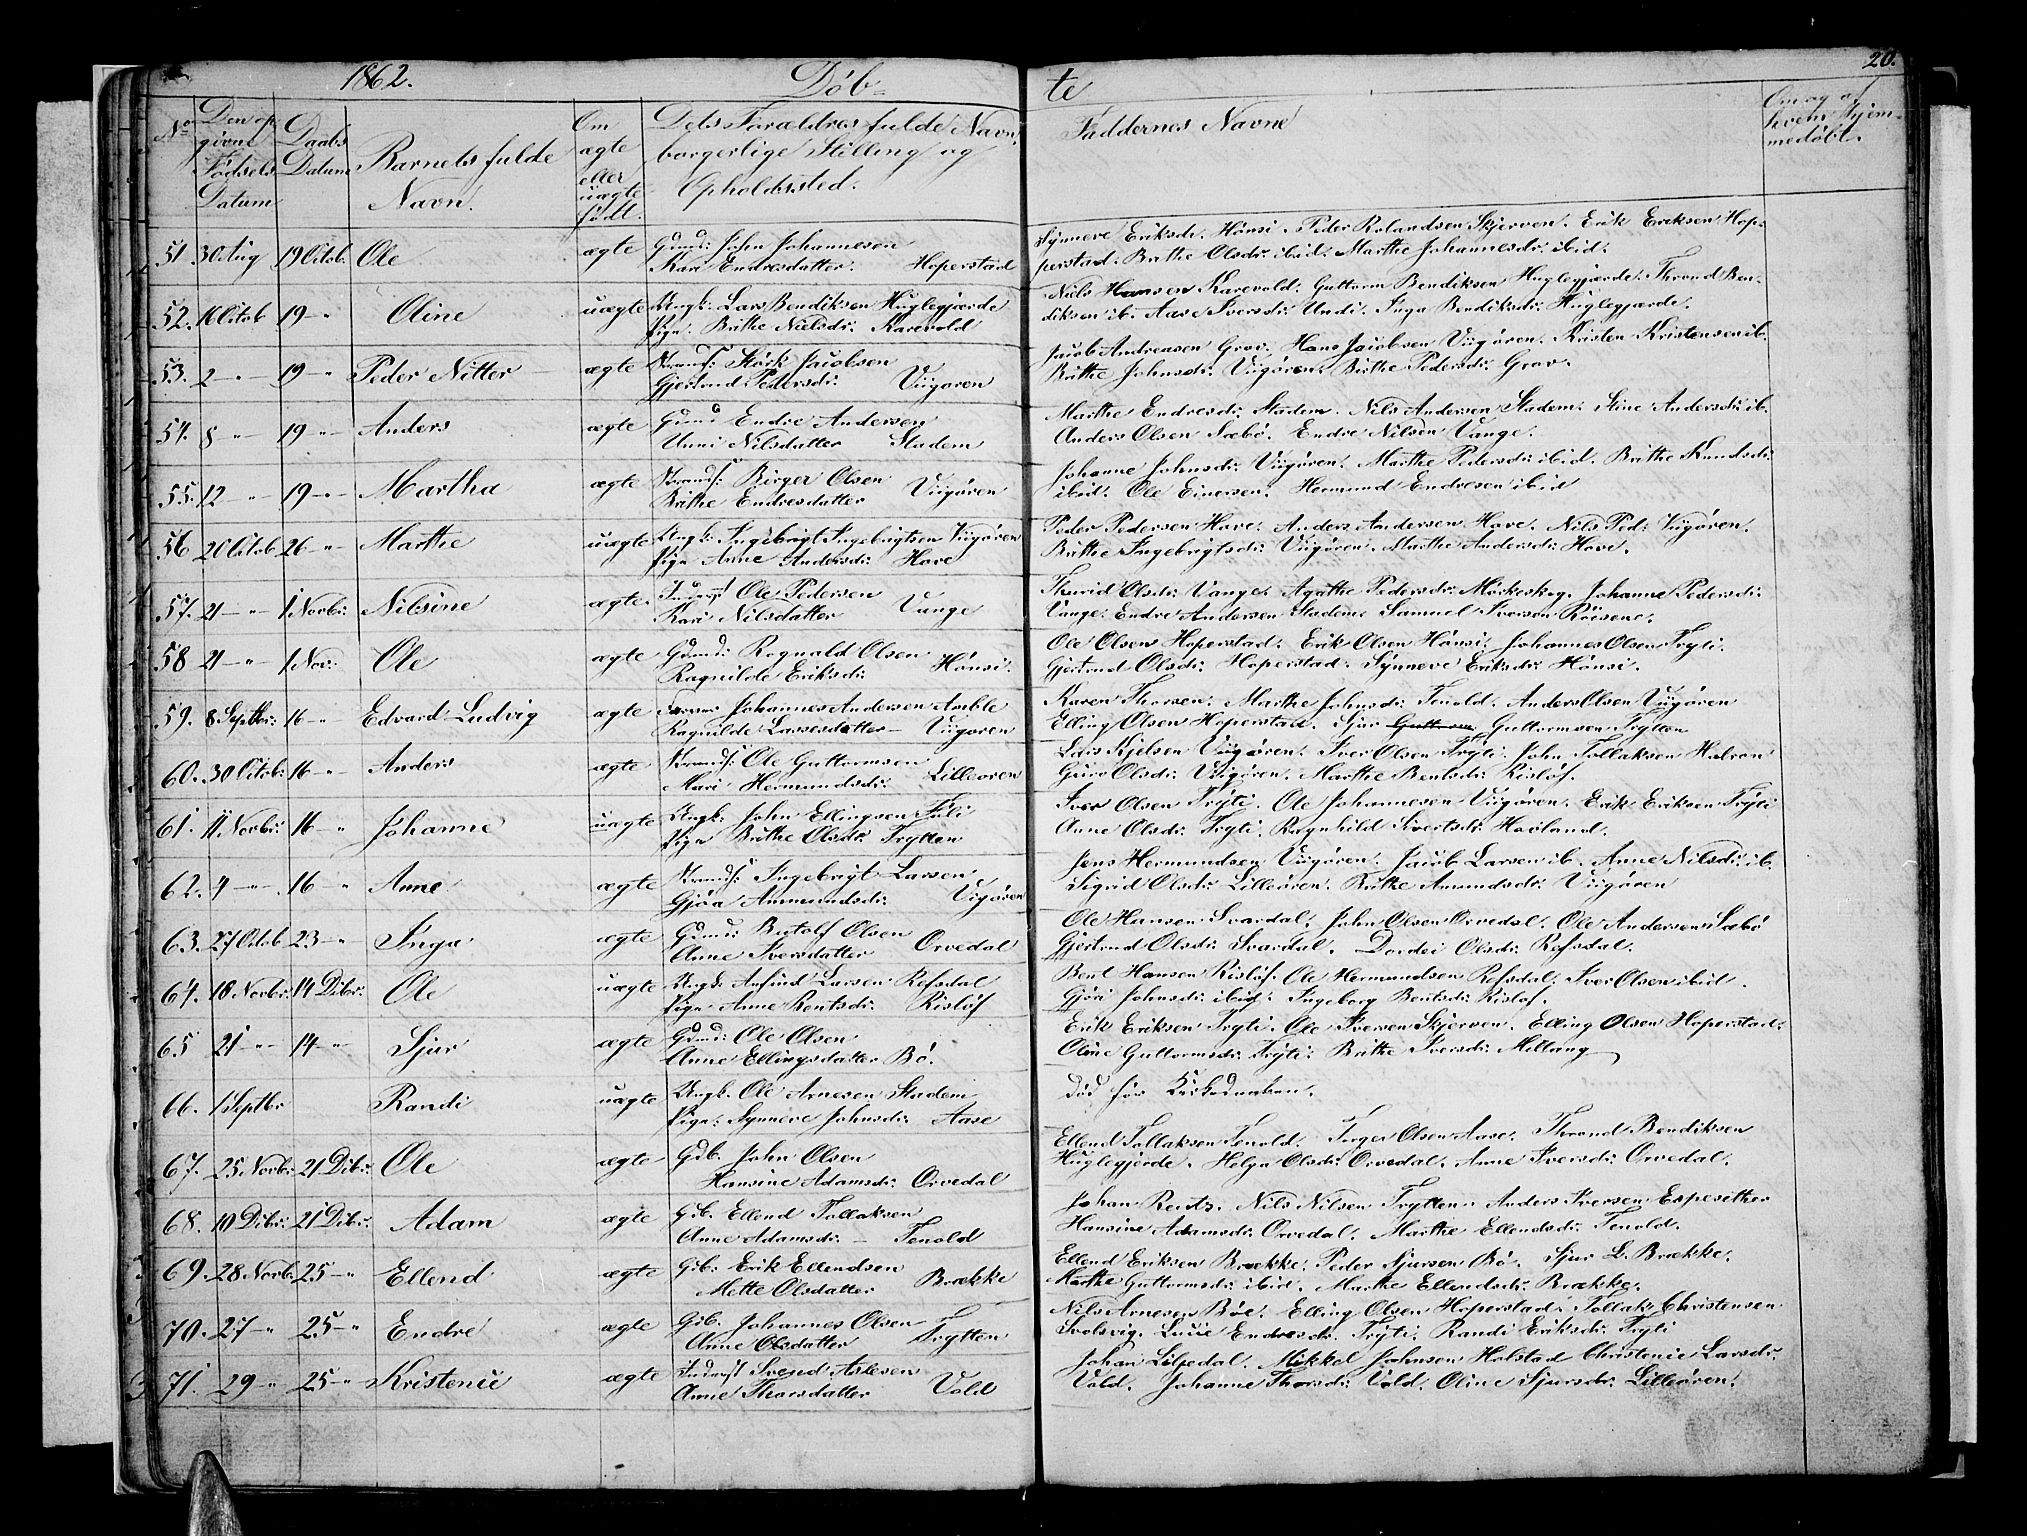 1862. Döb- te 20.
No Den op- givne Födsels Datum
Daabs Datum
Barnets fulde Navn.
Om ægte eller uægte födt.
Dets Forældres fulde Navn, borgerlige Stilling og Opholdssted.
Faddernes Navne
Om og af hvem hjem- medöbt.
51 30 Aug 19 Octob. Ole ægte Gmd: John Johannesen
Kari Endresdatter. Hoperstad
Synneve Eriksdr. Hönsi. Peder Rolandsen Skjerven. Erik Eriksen Hop-
perstad. Brithe Olsdr: ibid. Marthe Johannesdr: ibid.
52. 16 Octob 19 -"- Oline uægte Ungk: Lars Bendiksen Huglegjærde
Pige. Brithe Nielsdr: Karevold
Niels Hansen Karevold. Guttorm Bendiksen Huglegjærde. Thrond Ben-
diksen ib. Aase Iversdr: Undi. Inga Bendiksdr: Huglegjærde.
53. 2 -"- 19 -"- Peder Nitter ægte Strands: Störk Jacobsen
Gjertrud Pedersdr: Viigören
Jacob Andreasen Grov. Hans Jacobsen Viigören. Kristen Kristensen ib.
Brithe Johnsdr: Viigören. Brithe Pedersdr: Grov.
54. 8 -"- 19 -"- Anders ægte Gmd Endre Andersen
Unni Nilsdatter Stadem
Marthe Endresdr: Stadem. Nils Andersen Stadem. Stine Andersdr: ib.
Anders Olsen Sæbö. Endre Nilsen Vange.
55. 12 -"- 19 -"- Martha ægte Strands: Birger Olsen
Brithe Endresdatter Viigören
Johanne Johnsdr: Viigören. Marthe Pedersdr: ibid. Brithe Knudsdr:
ibid. Ole Einersen. Hermund Endresen ibid
56 20 Octob 26 -"- Marthe uægte Ungk: Ingebrigt Ingebrigtsen Viigören
Pige Anne Andersdr: Hove
Peder Pedersen Hove. Anders Andersen Hove. Nils Ped: Viigören.
Brithe Ingebrigtsdr: Viigören. Marthe Andersdr: Hove.
57. 21 -"- 1 Novbr: Nilsine ægte Inderst Ole Pedersen
Kari Nilsdatter Vange
Thurid Olsdr: Vange. Agathe Pedersdr: Mörkeskog. Johanne Pedersdr:
Vange. Endre Andersen Stadem. Samuel Iversen Röisene.
58 21 -"- 1 Nov: Ole ægte Gmd: Rognald Olsen
Ragnilde Eriksdr: Hönsi.
Ole Olsen Hoperstad. Erik Olsen Hönsi. Johannes Olsen Tryti.
Gjertrud Olsdr: Hoperstad. Synneve Eriksdr: Hönsi.
59. 8 Septbr: 16 -"- Edvard Ludvig ægte Johannes Andersen Amble
Ragnilde Lassesdatter Viigoren
Karen Thorsen. Marthe Johnsdr: Tenold. Anders Olsen Viigören
Elling Olsen Hoperstad. Sjur Guttorm Guttormsen Trytten
60. 30 Octob: 16 -"- Anders ægte Strands: Ole Guttormsen
Mari Hermundsdr: Lilleören
Lars Kjelsen Viigören. Iver Olsen Tryti. John Tollaksen Halron
Guro Olsdr: Viigören. Marthe Bentsdr: Rislöf.
61. 11 Novbr: 16 -"- Johanne uægte Ungk: John Ellingsen Tuli
Pige Brithe Olsdr. Trytten
Iver Olsen Tryti. Ole Johannesen Viigören. Erik Eriksen Tryti
Anne Olsdr: Tryti. Ragnhild Ivertsdr: Haöland.
62. 4 -"- 16 -"- Anne ægte Strands: Ingebrigt Larsen
Gjöa Anmundsdr: Viigören
Jens Hermundsen Viigören. Jacob Larsen ib. Anne Nilsdr: ib.
Sigrid Olsdr: Lilleören. Brithe Anmundsdr: Viigören
63. 27 Octob 23 -"- Inga ægte Gmd: Botolf Olsen
Anne Iversdatter Orvedal
Ole Hansen Svardal. John Olsen Orvedal. Ole Andersen Sæbö
Gjertrud Olsdr: Svardal. Dordei Olsdr: Refsdal.
64. 18 Novbr: 14 Dcbr: Ole uægte Ungk: Anfind Larsen Refsdal
Pige Anne Bentsdr: Rislöf
Bent Hansen Rislöf. Ole Hermundsen Refsdal. Iver Olsen ibid.
Gjöri Johnsdr: ibid. Ingeborg Bentsdr: Rislöf.
65 21 -"- 14 -"- Sjur ægte Gmd: Ole Olsen
Anne Ellingsdatter Bö.
Erik Eriksen Tryti. Ole Iversen Skjerven. Elling Olsen Hoperstad.
Oline Guttormsdr: Tryti. Brithe Iversdr: Millang
66. 1 Septbr Randi uægte Ungk. Ole Arnesen Stadem
Pige: Synneve Johnsdr: Aase
död för Kirkedaaben.
67. 25 Novbr: 21 Dcbr: Ole ægte Gdb. John Olsen
Hansine Adamsdr: Orvedal
Ellend Tollaksen Tenold. Torger Olsen Aase. Thrond Bendiksen
Huglegjerde. Helga Olsdr: Orvedal. Anne Iversdr: Orvedal.
68. 10 Dcbr: 21 Dcbr. Adam ægte Gb. Ellend Tollaksen
Anne Adamsdr: - Tenold
Johan Rentz. Nils Nilsen Trytten. Anders Iversen Espesether
Hansine Adamsdr: Orvedal. Marthe Ellendsdr: Tenold.
69. 28 Novb. 25 -"- Ellend ægte Gb: Erik Ellendsen
Mette Olsdatter Brække
Ellend Eriksen Brække. Peder Sjursen Bö. Sjur L. Brække.
Marthe Guttormsdr: ibid. Marthe Ellendsdr: Brække.
70. 27 -"- 25 -"- Endre ægte Gb. Johannes Olsen
Anne Olsdatter Trytten
Nils Arnesen Böe. Elling Olsen Hoperstad. Tollak Christensen
Svolsvig. Lucie Endresdr. Tryti. Randi Eriksdr: Tryti
71. 29 -"- 25 -"- Kristence ægte Inderst Svend Aslesen
Anne Thorsdatter Vold
Johan Liljedal. Mikkel Johnsen Holstad Christence Larsdr:
Vold. Johanne Thorsdr: Vold. Oline Sjursdr: Lilleören.